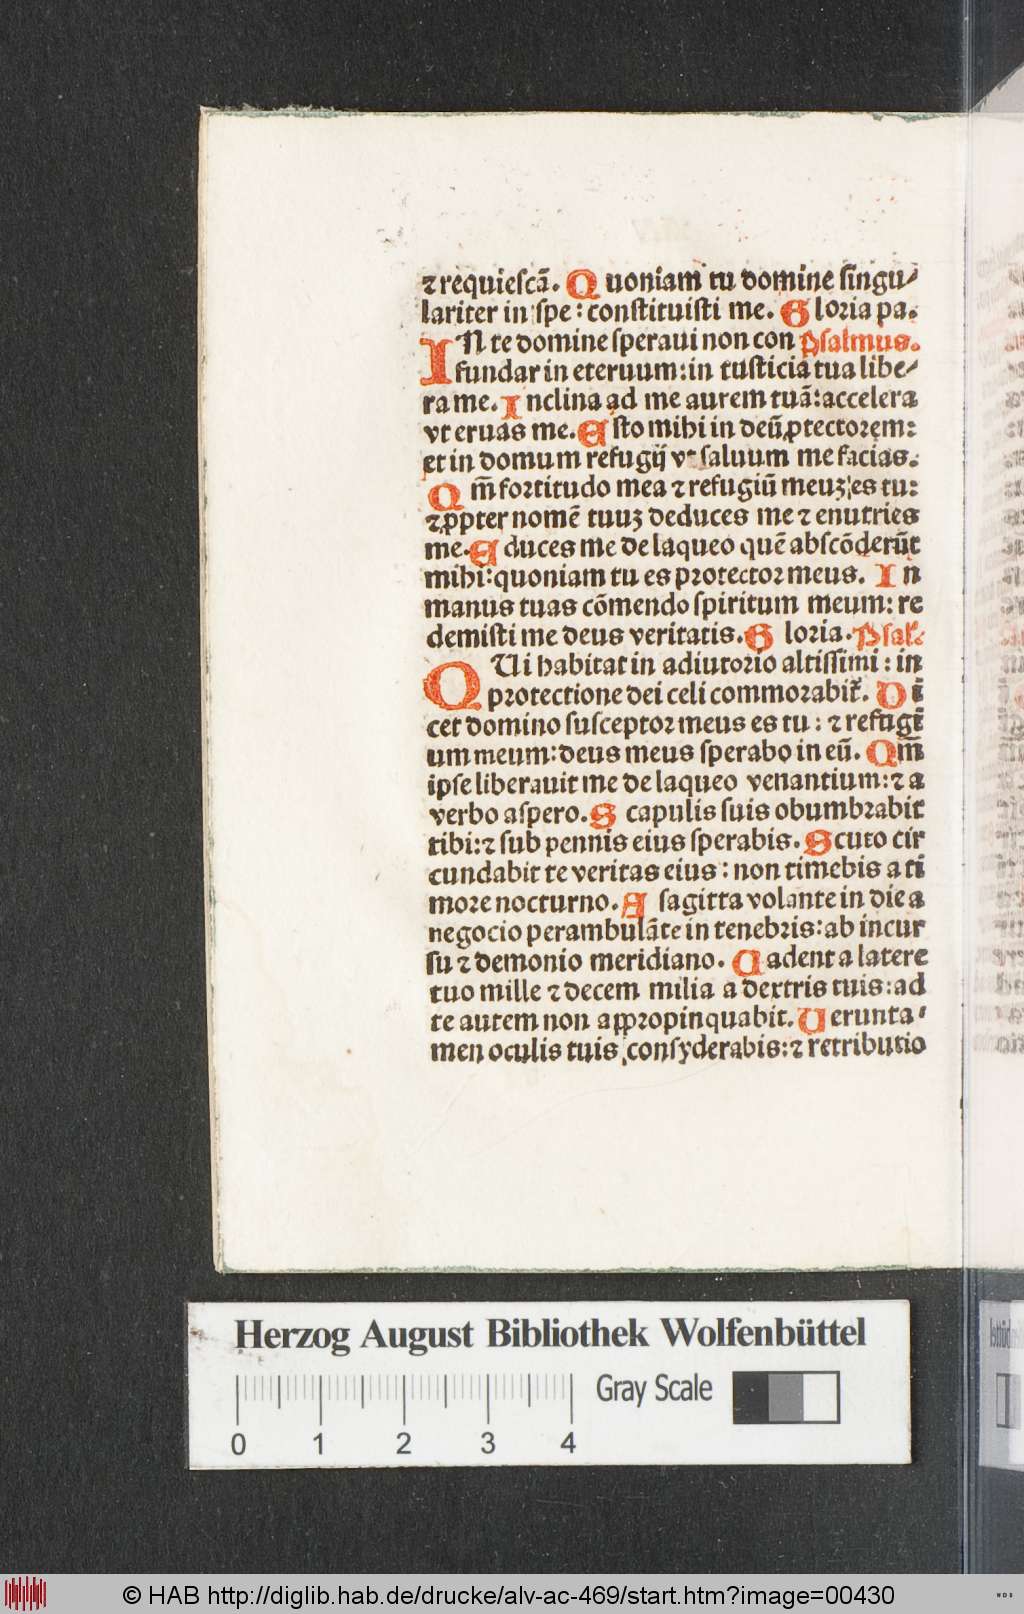 ⁊ requieſcā. Quoniam tu domine ſingu⸗
lariter in ſpe: conſtituiſti me. Gloria pa.
IN te domine ſperaui non con Pſalmus.
fundar in eteruum: in tuſticia tua libe⸗
ra me. Inclina ad me aurem tuā: accelera
vt eruas me. Eſto mihi in deū ꝓtectorem:
et in domum refugij vt ſaluum me facias.
Qm̄ fortitudo mea ⁊ refugiū meuꝫ es tu:
⁊ ꝓpter nomē tuuꝫ deduces me ⁊ enutries
me. Educes me de laqueo quē abſcōderūt
mihi: quoniam tu es protector meus. In
manus tuas cōmendo ſpiritum meum: re
demiſti me deus veritatis. Gloria. Pſal.
QUi habitat in adiutorio altiſſimi: in
protectione dei celi commorabit̄. Di
cet domino ſuſceptor meus es tu: ⁊ refugi
um meum: deus meus ſperabo in eū. Qm̄
ipſe liberauit me de laqueo venantium: ⁊ a
verbo aſpero. Scapulis ſuis obumbrabit
tibi: ⁊ ſub pennis eius ſperabis. Scuto cir
cundabit te veritas eius: non timebis a ti
more nocturno. A ſagitta volante in die a
negocio perambulāte in tenebris: ab incur
ſu ⁊ demonio meridiano. Cadent a latere
tuo mille ⁊ decem milia a dextris tuis: ad
te autem non appropinquabit. Uerunta⸗
men oculis tuis conſyderabis: ⁊ retributio
Herzog August Bibliothek Wolfenbüttel
Gray Scale
0 1 2 3 4
© HAB http://diglib.hab.de/drucke/alv-ac-469/start.htm?image=00430